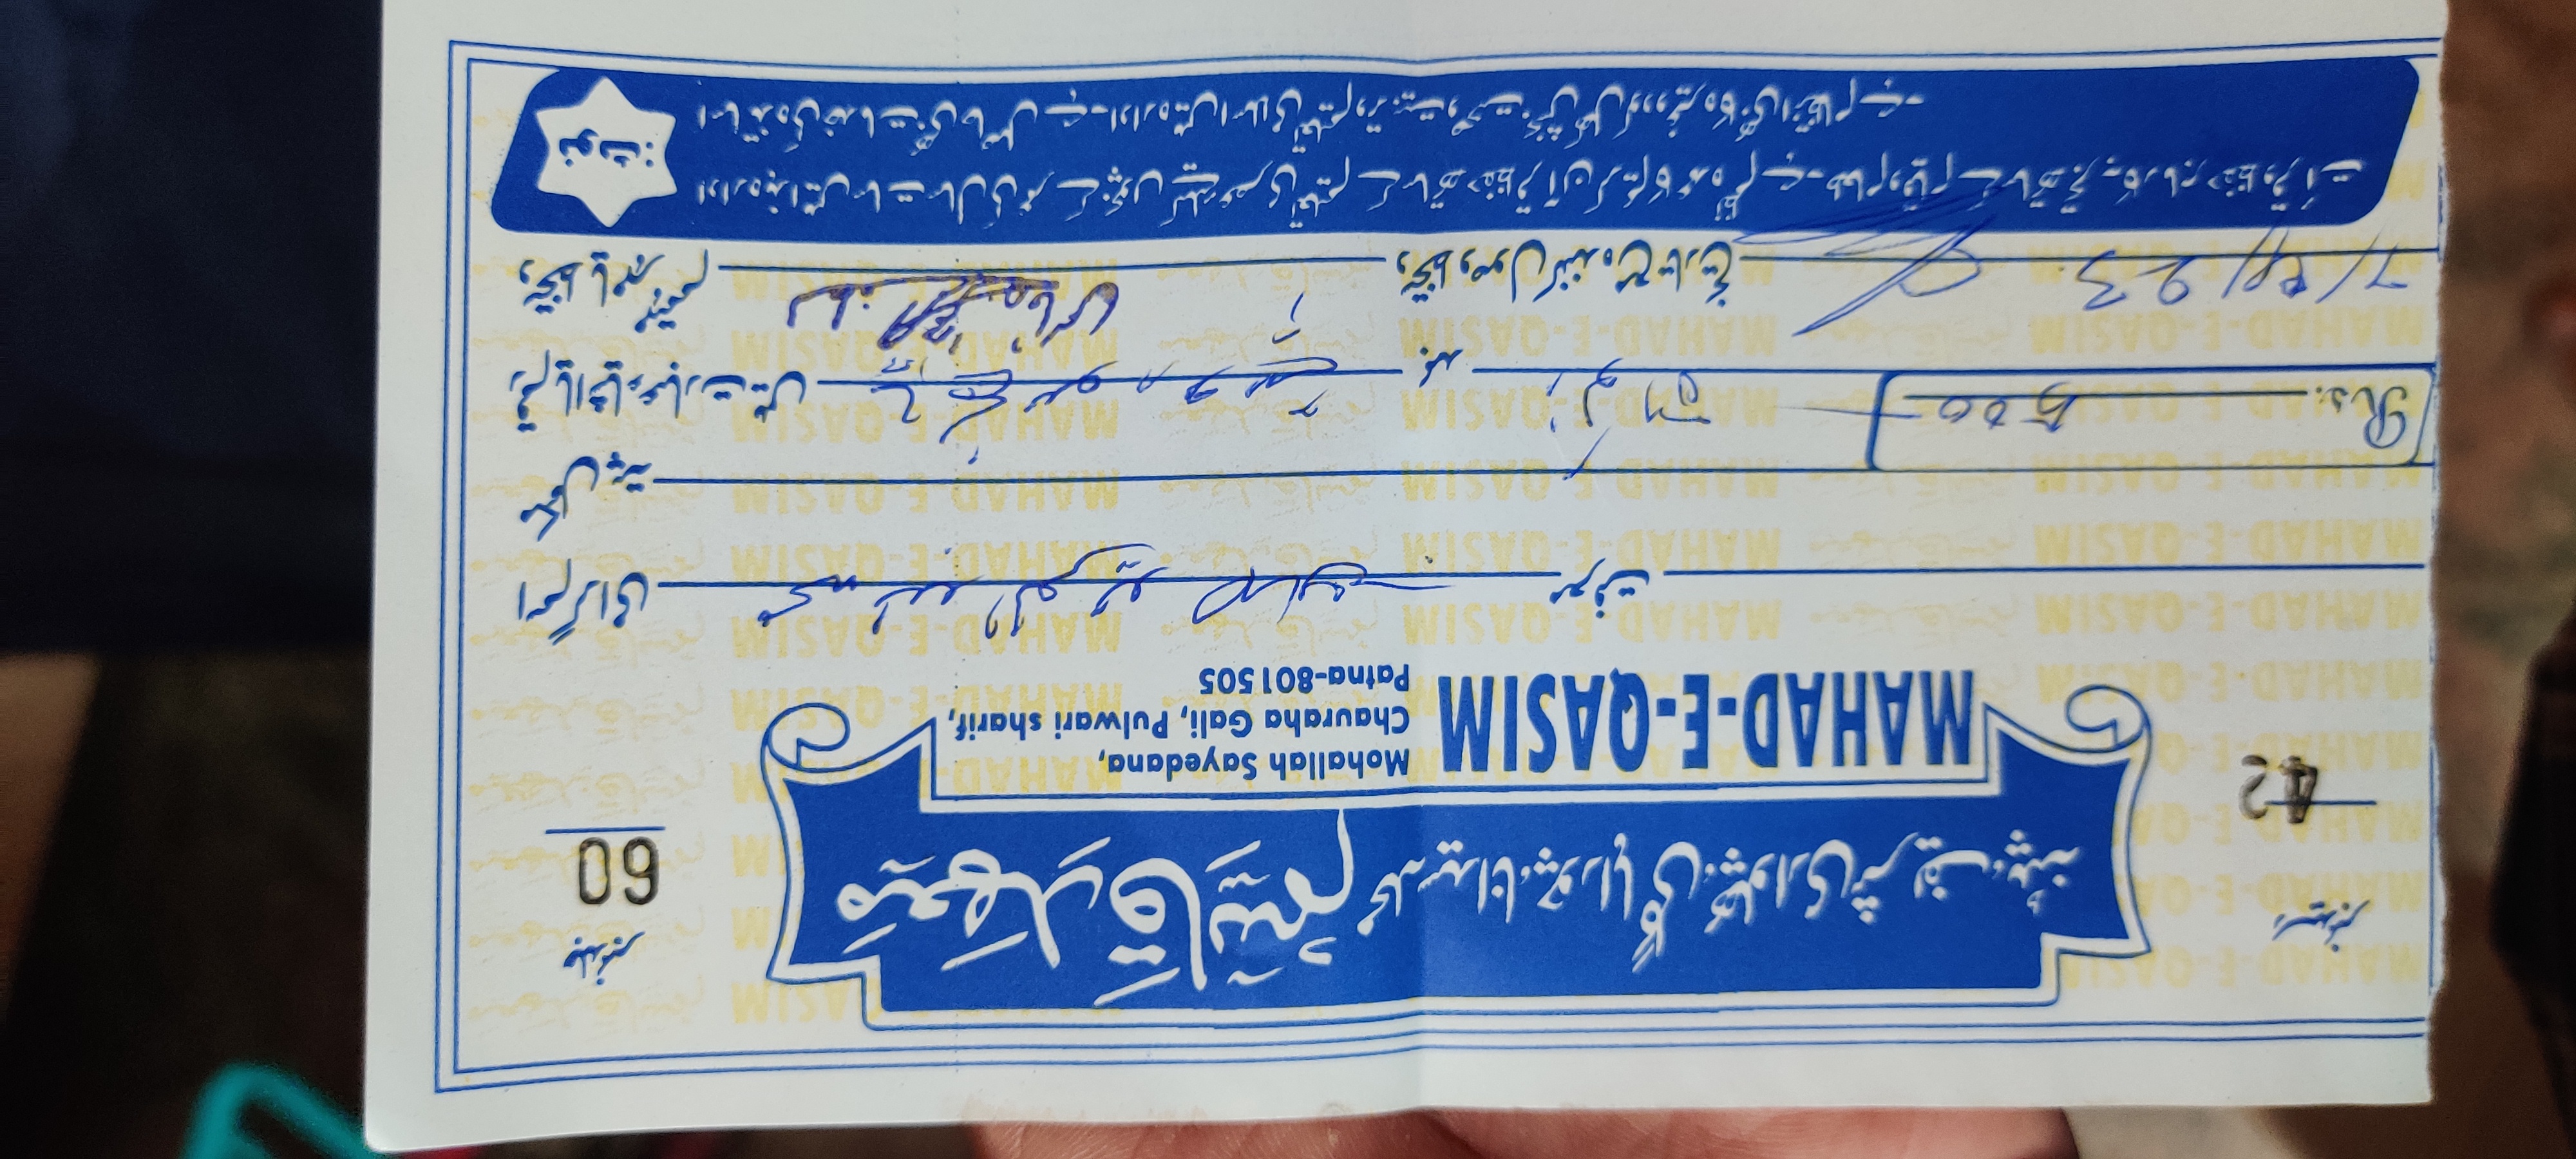 رسید نمبر
42
جلد نمبر
60
معهد قاسم محلہ سیدانا، چوراہا گلی، پھلواری شریف، پٹنہ
MAHAD-E-QASIM
Mohallah Sayedana,
Chauraha Gali, Pulwari sharif,
Patna-801505
اسم گرامی محمد عبد صاحب معرفت
مکمل پتہ
رقم یا اشیاء عبارت میں پانچ سو روپیے بمد زکوٰۃ Rs. 500
دستخط یا مہر مہتمم قاسمی دستخط وصول کنندہ مع تاریخ 7/4/23
نوٹ:
ادارہ ہذا میں سات سال کی عمر کے بچوں کیلئے عصری تعلیم کے ساتھ حفظ قرآن کریم کا عمدہ نظم ہے۔ طعام و قیام کے ساتھ تجربہ کار ماہر حفظ و قرأت
اساتذہ کی خدمات بھی حاصل ہے۔ ادارہ میں اسلامی تعلیم و تربیت و صحت بخش کھیل کود وغیرہ کا بھی انتظام ہے۔